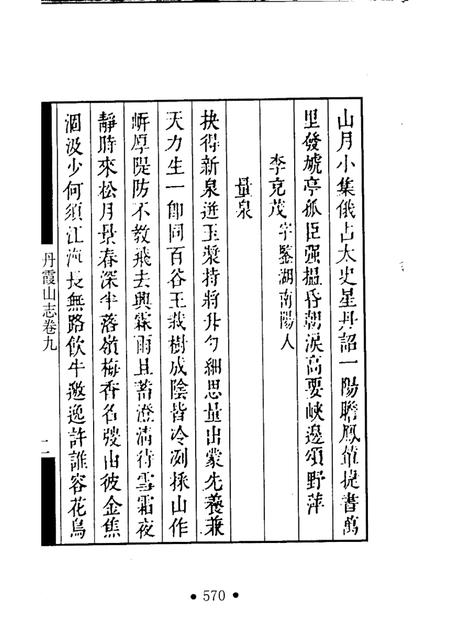 山月小集俄占太史星丹詔一陽瞻鳳值捷書萬
里發虓亭孤臣强揾昏朝淚高要峽邊頌野萍
李克茂字鑒湖南陽人
量泉
抉得新泉迸玉漿持將升勺細思量出蒙先養兼
天力生一郎同百谷王栽樹成陰皆冷冽採山作
㟁厚隄防不教飛去興霖雨且蓄澄清待雪霜夜
靜時來松月景春深半落嶺梅香名弢由彼金焦
涸汲少何須江海長無路飲牛邀逸許誰容花鳥
丹霞山志卷九
二
570